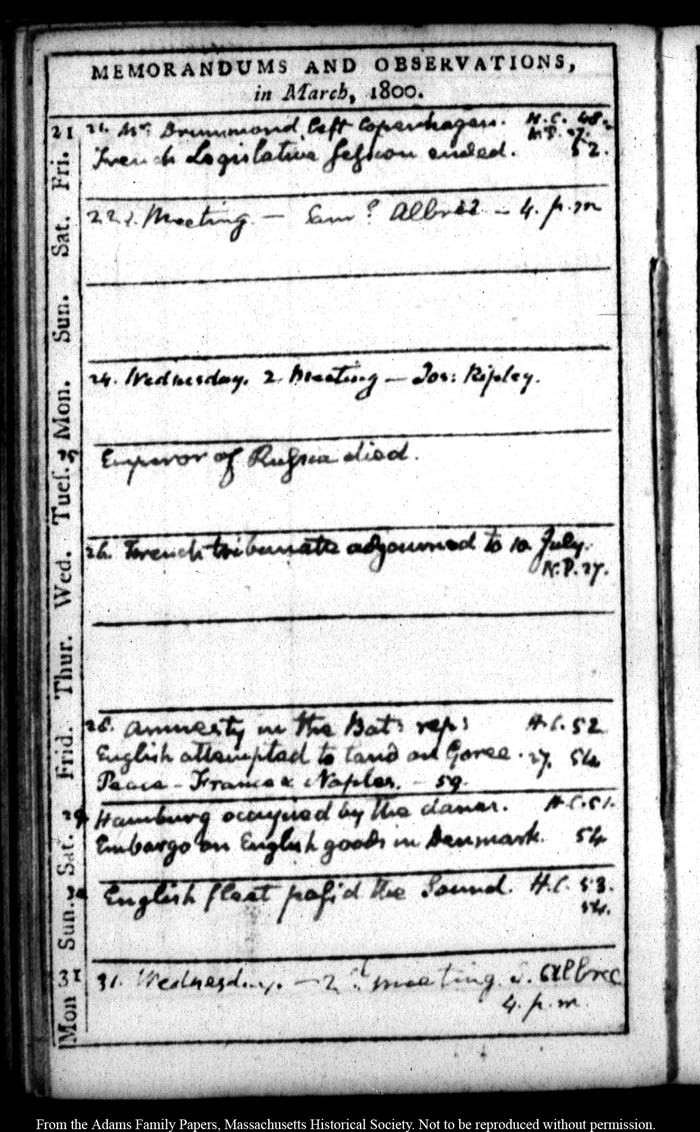 MEMORANDUMS AND OBSERVATIONS,
in March, 1800.
21 Fri. 21. Mr. Drummond left Copenhagen. H.C. 48.
N.P. 27.
French Legislative Session ended. 52.
Sat. 22d. Meeting — Sam? Albree — 4. p.m
Sun.
Mon. 24. Wednesday. 2. Meeting — Jos: Ripley.
Tues. 25 Emperor of Russia died.
Wed. 26. French tribunate adjourned to 10 July.
N.P. 27.
Thur.
Frid. 28. Amnesty in the Bat: rep: H.C. 52
English attempted to land on Goree. 27. 54
Peace — France & Naples. — 59.
Sat. 29 Hamburg occupied by the danes. H.C. 51.
Embargo on English goods in Denmark. 54
Sun 30 English fleet pass'd the Sound. H.C. 53.
54.
31 Mon 31. Wednesday. — 2d meeting. S. Albree
4. p.m.
From the Adams Family Papers, Massachusetts Historical Society. Not to be reproduced without permission.